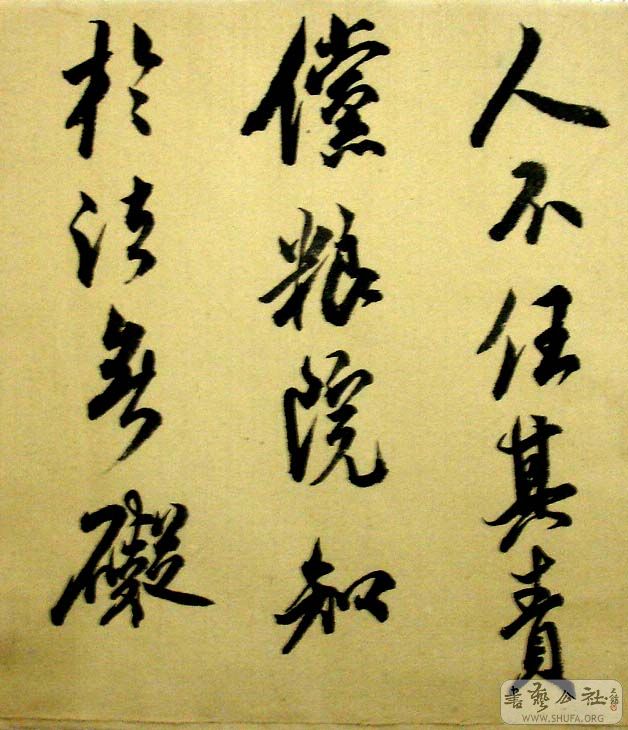 人不任其責
儻粮院知
於法無礙
書藝公社
WWW.SHUFA.ORG